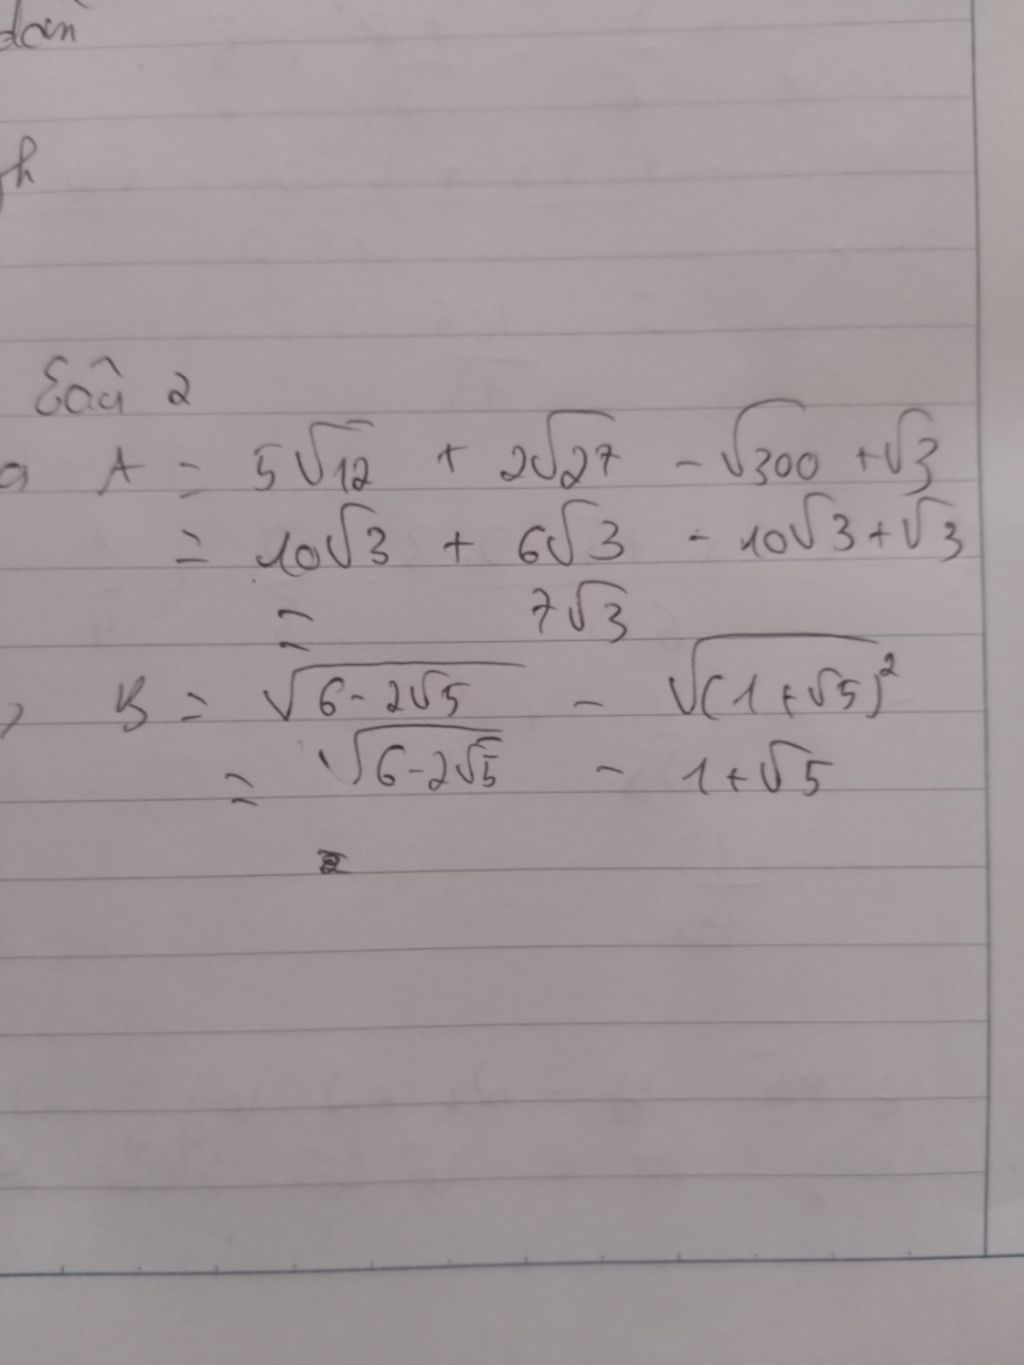 dan
h
Câu 2
a A = 5√12 + 2√27 - √300 + √3
= 10√3 + 6√3 - 10√3 + √3
= 7√3
B = √(6 - 2√5) - √((1 + √5)²)
= √(6 - 2√5) - 1 + √5